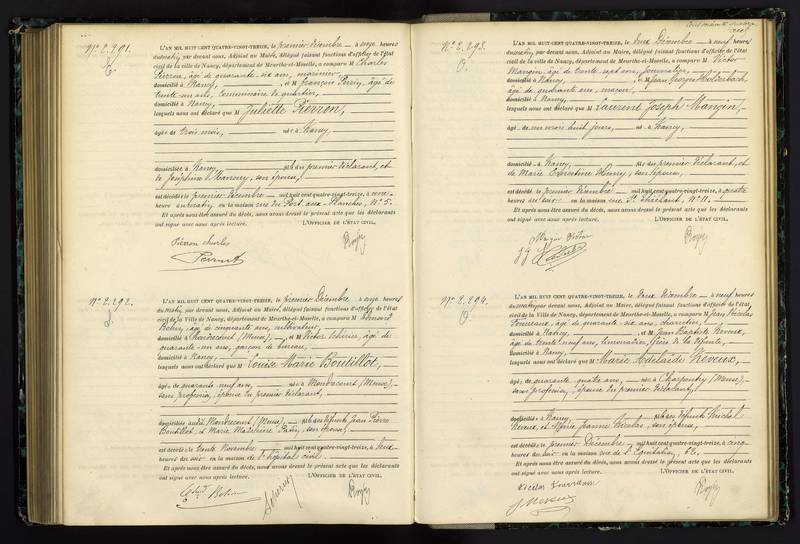 N° 2.291.
L'AN MIL HUIT CENT QUATRE-VINGT-TREIZE, le premier Décembre — à onze heures
du matin, par devant nous, Adjoint au Maire, délégué faisant fonctions d'officier de l'état
civil de la Ville de Nancy, département de Meurthe-et-Moselle, a comparu M Charles
Pierron, âgé de quarante-six ans,
domicilié à Nancy, — et M François Perrin, âgé de
trente un ans, Commissaire de quartier,
domicilié à Nancy,
lesquels nous ont déclaré que M Juliette Pierron,
âgée de trois mois, — née à Nancy,
domiciliée à Nancy, fille du premier déclarant, et
de Joséphine son épouse,
est décédée le premier Décembre — mil huit cent quatre-vingt-treize, à
heures du matin en la maison rue du Port-aux-Planches, N° 5.
Et après nous être assuré du décès, nous avons dressé le présent acte que les déclarants
ont signé avec nous après lecture. L'OFFICIER DE L'ÉTAT CIVIL.
Pierron Charles
N° 2.292.
L'AN MIL HUIT CENT QUATRE-VINGT-TREIZE, le premier Décembre — à onze heures
du matin, par devant nous, Adjoint au Maire, délégué faisant fonctions d'officier de l'état
civil de la Ville de Nancy, département de Meurthe-et-Moselle, a comparu M
âgé de cinquante ans, cultivateur,
domicilié à (Meuse), — et M Victor âgé de
quarante-un ans, garçon de bureau,
domicilié à Nancy,
lesquels nous ont déclaré que M Louise Marie Boutillot,
âgée de quarante neuf ans, — née à (Meuse),
sans profession, épouse du premier déclarant,
domiciliée audit (Meuse), fille des défunts Jean Pierre
Boutillot, et Marie Madeleine son épouse,
est décédée le trente Novembre — mil huit cent quatre-vingt-treize, à deux
heures du soir en la maison de l'hôpital civil.
Et après nous être assuré du décès, nous avons dressé le présent acte que les déclarants
ont signé avec nous après lecture. L'OFFICIER DE L'ÉTAT CIVIL.
N° 2.293.
L'AN MIL HUIT CENT QUATRE-VINGT-TREIZE, le deux Décembre — à neuf heures
du matin, par devant nous, Adjoint au Maire, délégué faisant fonctions d'officier de l'état
civil de la Ville de Nancy, département de Meurthe-et-Moselle, a comparu M Victor
Mangin, âgé de trente sept ans, journalier,
domicilié à Nancy, et M Jean Georges
âgé de quarante ans, maçon,
domicilié à Nancy,
lesquels nous ont déclaré que M Laurent Joseph Mangin,
âgé de un mois huit jours, — né à Nancy,
domicilié à Nancy, fils du premier déclarant, et
de Marie Henry, son épouse,
est décédé le premier Décembre — mil huit cent quatre-vingt-treize, à quatre
heures du soir en la maison rue St Thiébaut, N° 11.
Et après nous être assuré du décès, nous avons dressé le présent acte que les déclarants
ont signé avec nous après lecture. L'OFFICIER DE L'ÉTAT CIVIL.
Mangin Victor
N° 2.294.
L'AN MIL HUIT CENT QUATRE-VINGT-TREIZE, le deux Décembre — à neuf heures
du matin, par devant nous, Adjoint au Maire, délégué faisant fonctions d'officier de l'état
civil de la Ville de Nancy, département de Meurthe-et-Moselle, a comparu M Jean Nicolas
âgé de quarante-six ans, charretier,
domicilié à Nancy, et M Jean Baptiste Neveux,
âgé de trente neuf ans, frère de la défunte,
domicilié à Nancy,
lesquels nous ont déclaré que M Marie Adélaïde Neveux,
âgée de quarante quatre ans, — née à Charpentry (Meuse),
sans profession, épouse du premier déclarant,
domiciliée à Nancy, fille des défunts Michel
Neveux, et Marie Jeanne Nicolas, son épouse,
est décédée le premier Décembre — mil huit cent quatre-vingt-treize, à cinq
heures du soir en la maison rue de l'Equitation, 62.
Et après nous être assuré du décès, nous avons dressé le présent acte que les déclarants
ont signé avec nous après lecture. L'OFFICIER DE L'ÉTAT CIVIL.
J Neveux